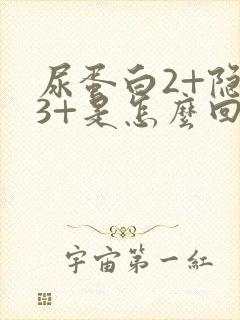 尿蛋白2+隐
3+是怎麼回
宇宙第一紅